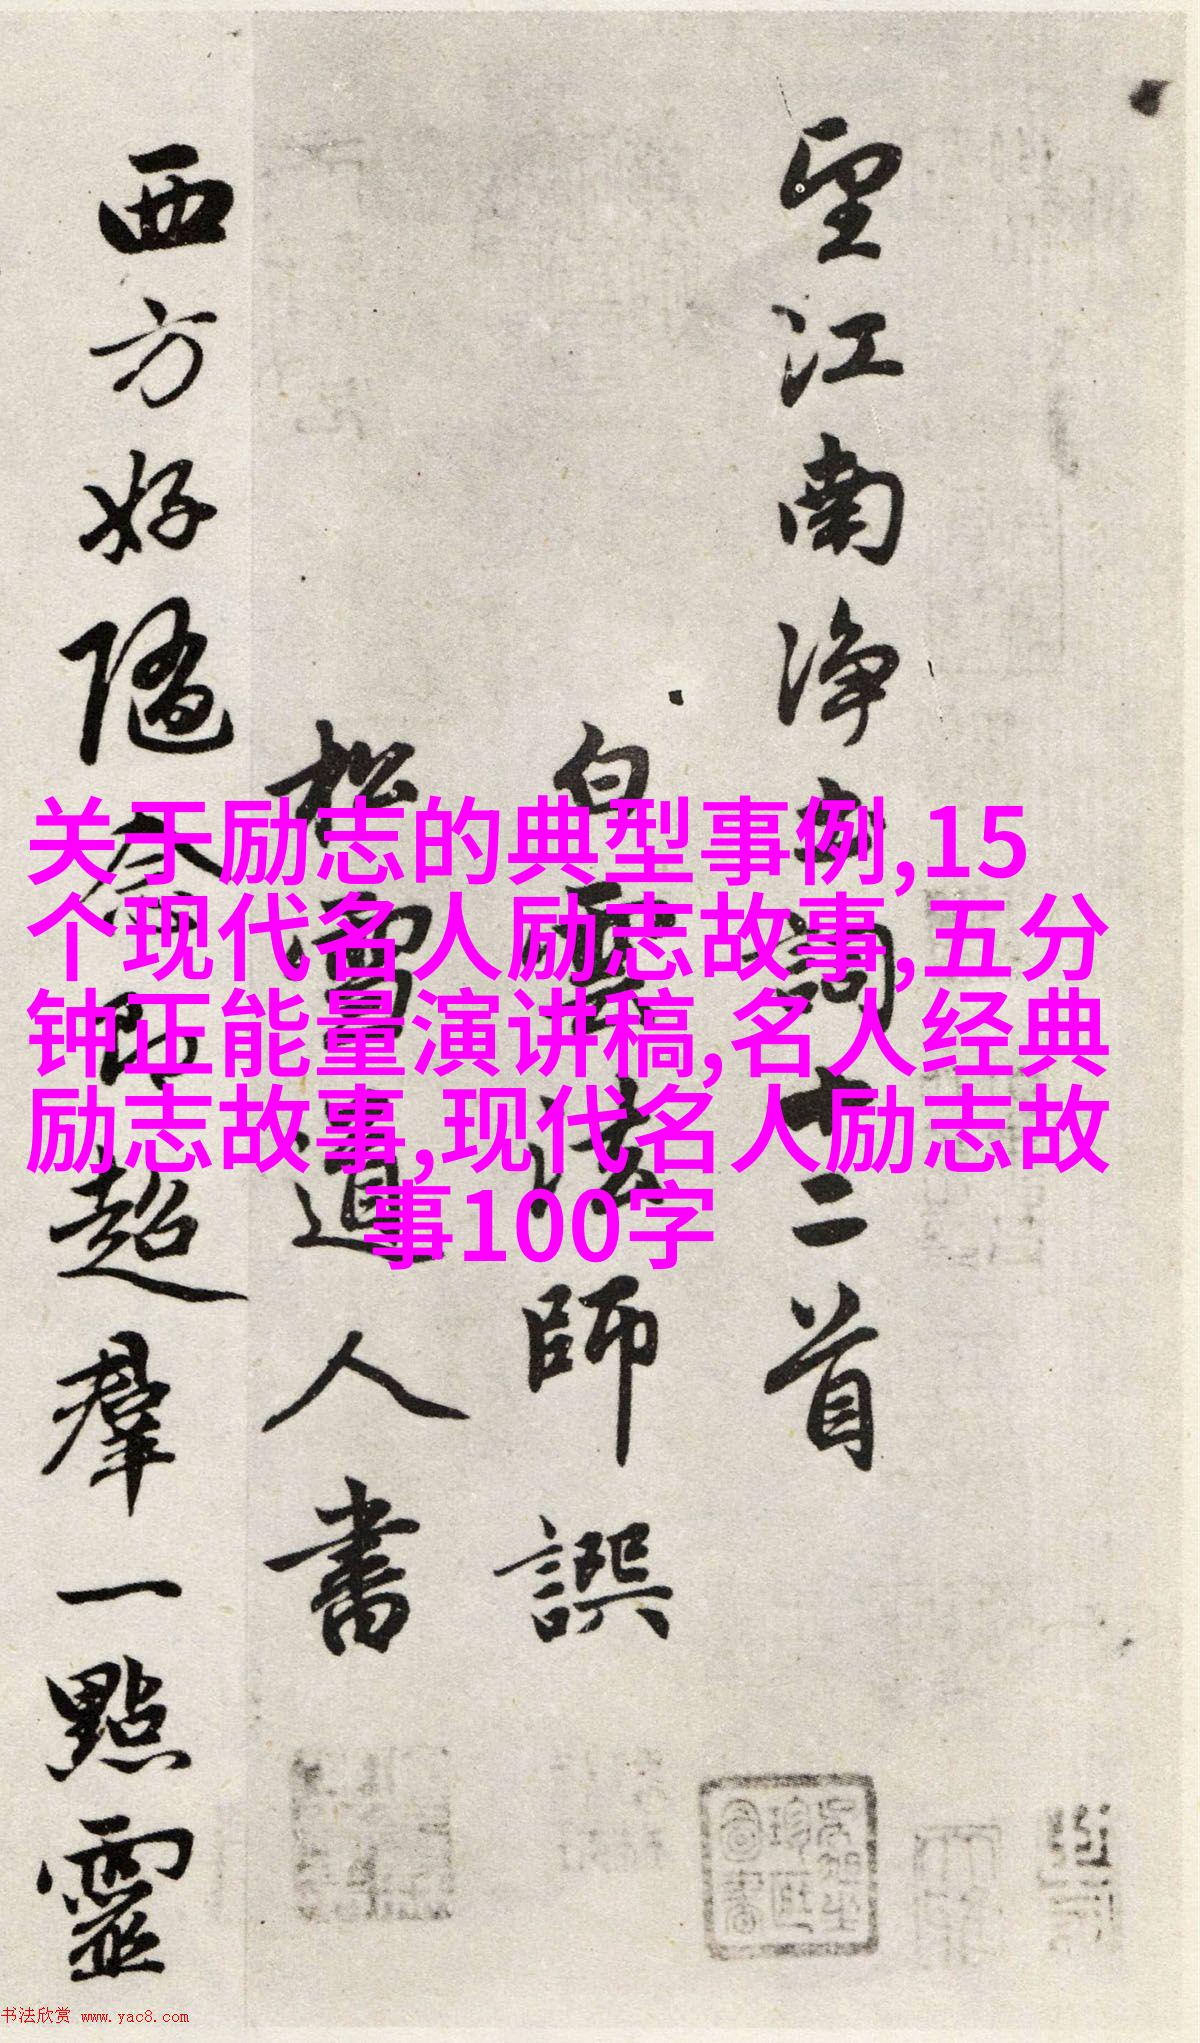 望江南净土詞十二首
白雲法師譔
松雪道人書
西方好隨念即超羣一點靈
关于励志的典型事例,15
个现代名人励志故事,五分
钟正能量演讲稿,名人经典
励志故事,现代名人励志故
事100字
书法欣赏 www.yac8.com